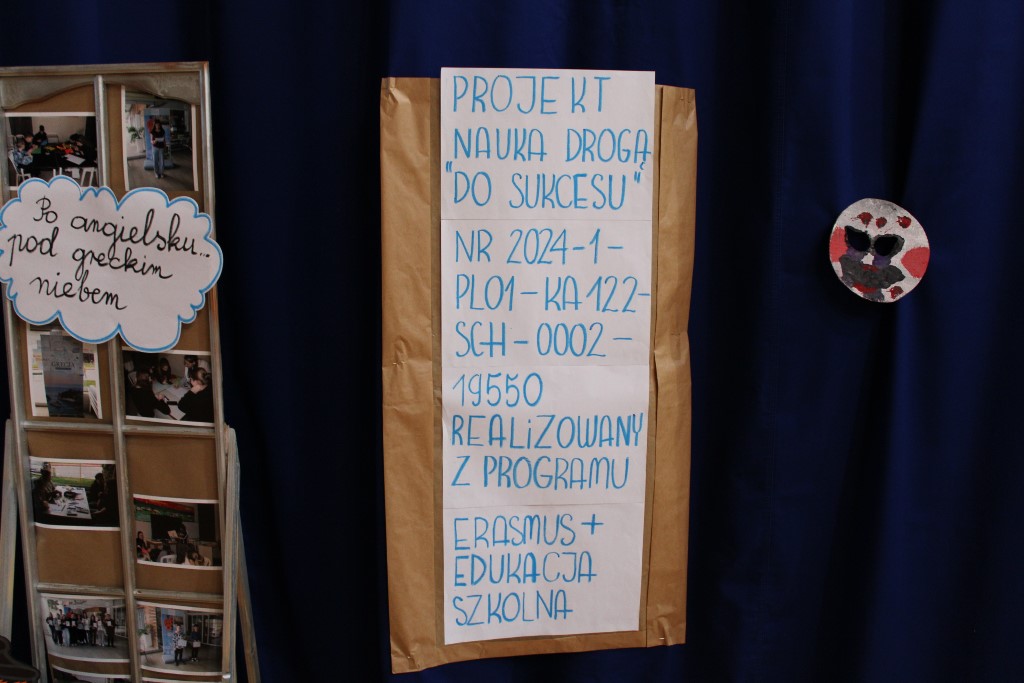 Po angielsku...
pod greckim
niebem
PROJEKT
NAUKA DROGĄ
"DO SUKCESU"
NR 2024-1-
PL01-KA122-
SCH-0002-
19550
REALiZOWANY
Z PROGRAMU
ERASMUS+
EDUKACJA
SZKOLNA